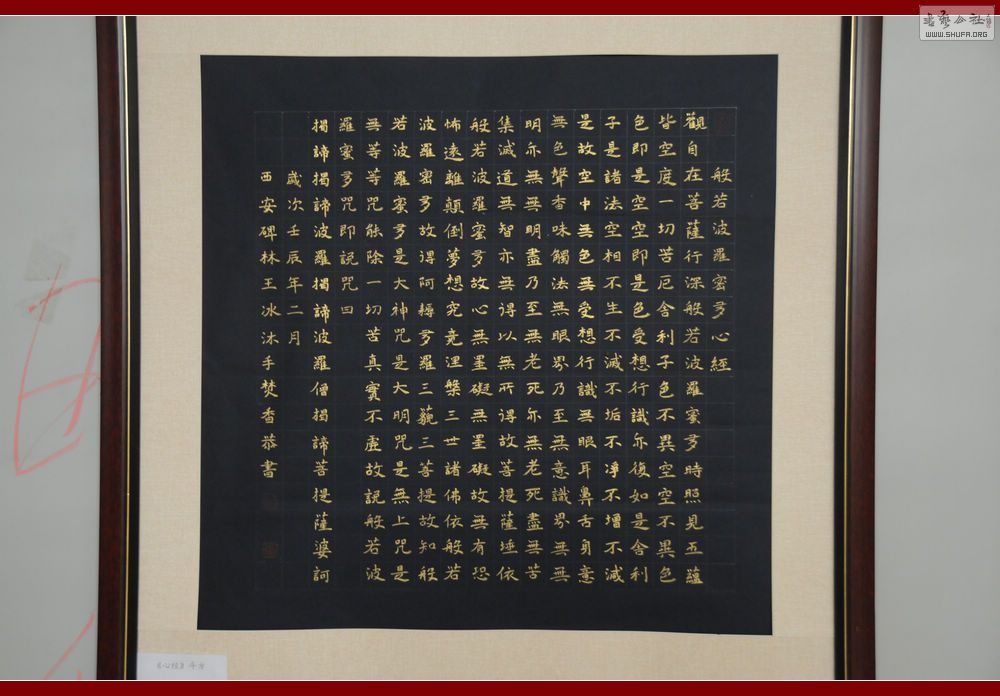 般若波羅蜜多心經
觀自在菩薩行深般若波羅蜜多時照見五蘊
皆空度一切苦厄舍利子色不異空空不異色
色即是空空即是色受想行識亦復如是舍利
子是諸法空相不生不滅不垢不淨不增不減
是故空中無色無受想行識無眼耳鼻舌身意
無色聲香味觸法無眼界乃至無意識界無無
明亦無無明盡乃至無老死亦無老死盡無苦
集滅道無智亦無得以無所得故菩提薩埵依
般若波羅蜜多故心無罣礙無罣礙故無有恐
怖遠離顛倒夢想究竟涅槃三世諸佛依般若
波羅密多故得阿耨多羅三藐三菩提故知般
若波羅蜜多是大神咒是大明咒是無上咒是
無等等咒能除一切苦真實不虛故說般若波
羅蜜多咒即說咒曰
揭諦揭諦波羅揭諦波羅僧揭諦菩提薩婆訶
歲次壬辰年二月
西安碑林王冰沐手焚香恭書
《心經》斗方
书艺公社
WWW.SHUFA.ORG